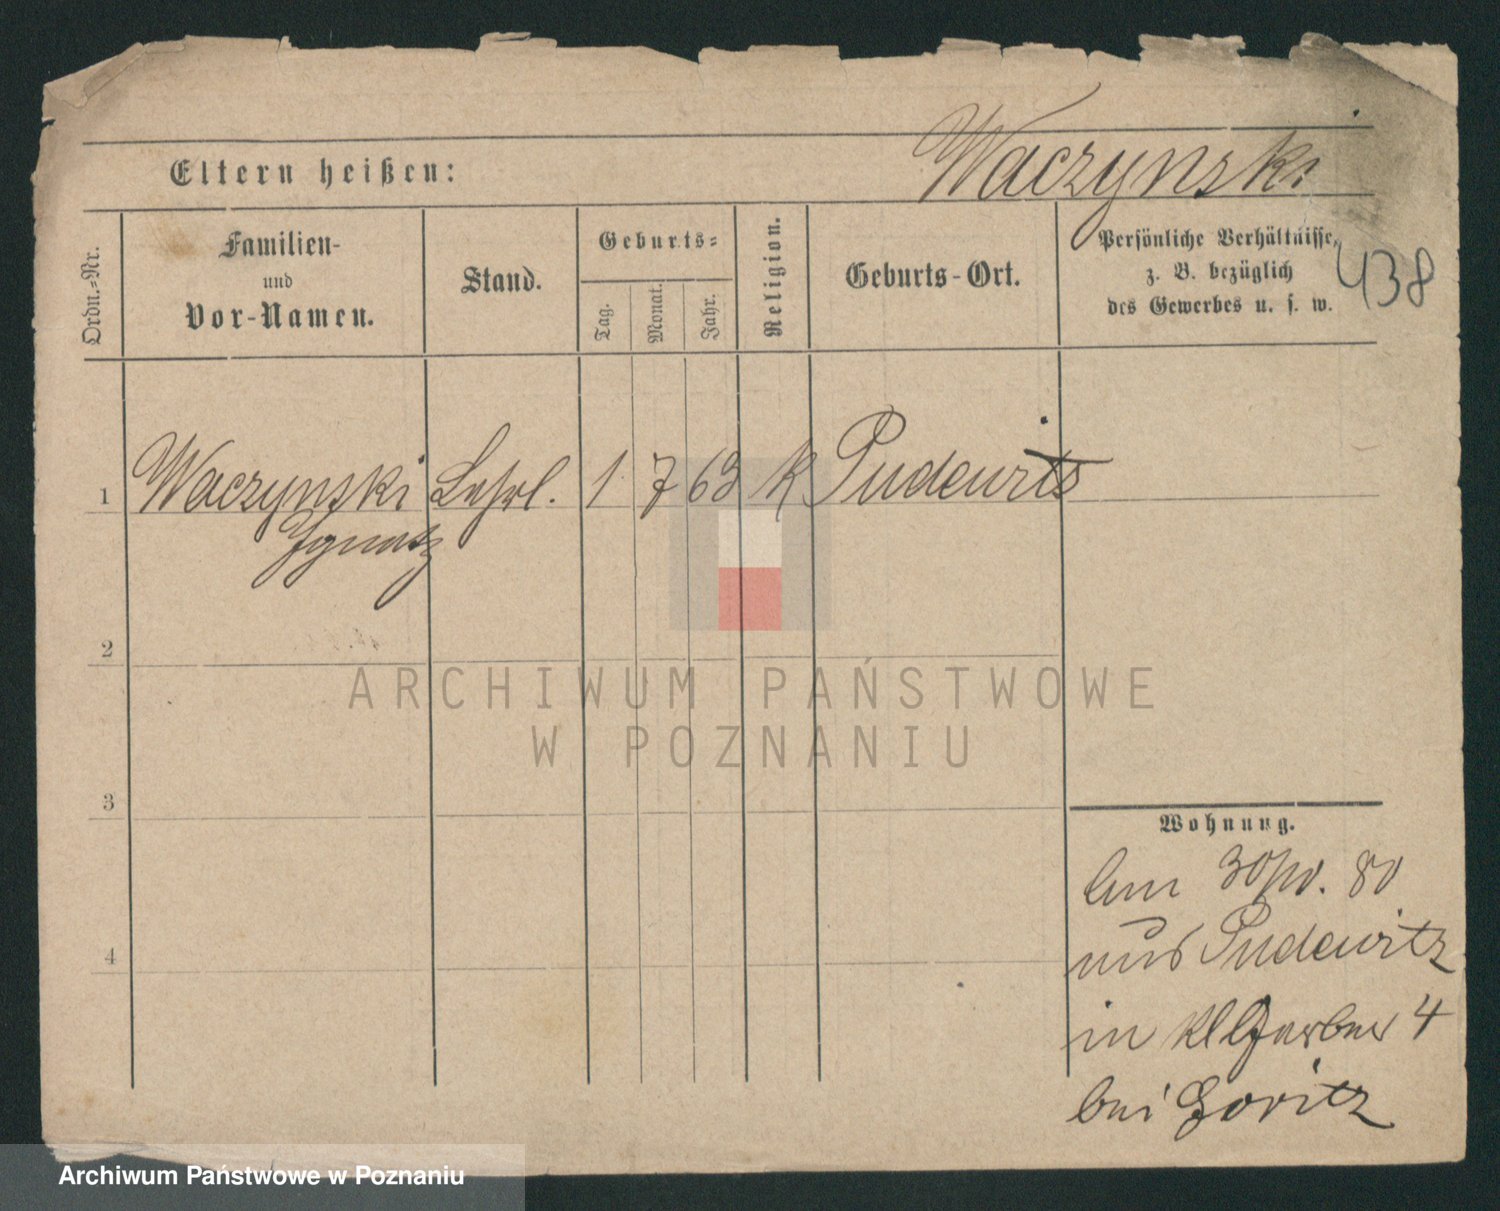 Waczynski
Eltern heißen:
438
Ordn.-Nr.
Familien-
und
Vor-Namen.
Stand.
Geburts-
Tag.
Monat.
Jahr.
Religion.
Geburts-Ort.
Persönliche Verhältnisse,
z. B. bezüglich
des Gewerbes u. s. w.
1 Waczynski Lehrl. 1 7 63 K Pudewitz
Ignatz
2
3
4
Wohnung.
30/IV. 80
aus Pudewitz
in Kl Gerber 4
bei
ARCHIWUM PAŃSTWOWE
W POZNANIU
Archiwum Państwowe w Poznaniu